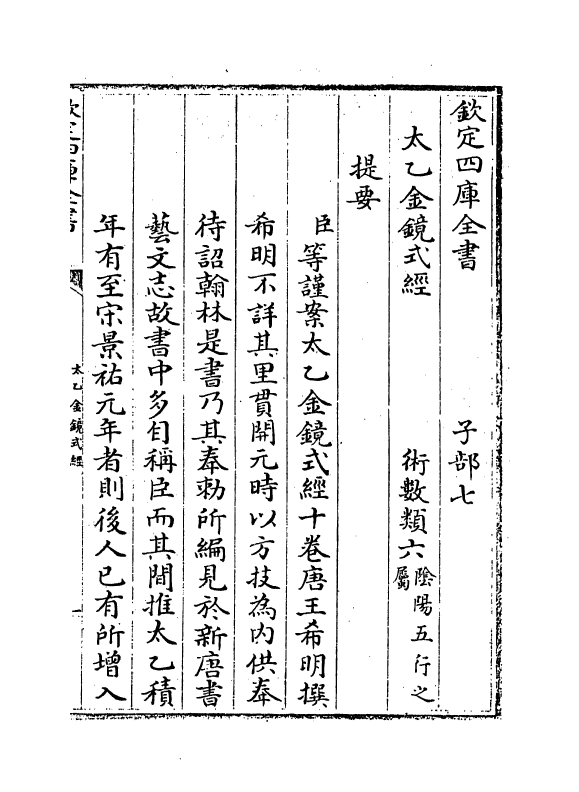 欽定四庫全書 子部七
太乙金鏡式經 術數類六 陰陽五行之屬
提要
臣等謹案太乙金鏡式經十卷唐王希明撰
希明不詳其里貫開元時以方技為内供奉
待詔翰林是書乃其奉勅所編見於新唐書
藝文志故書中多自稱臣而其間推太乙積
年有至宋景祐元年者則後人已有所增入
欽定四庫全書
太乙金鏡式經
一